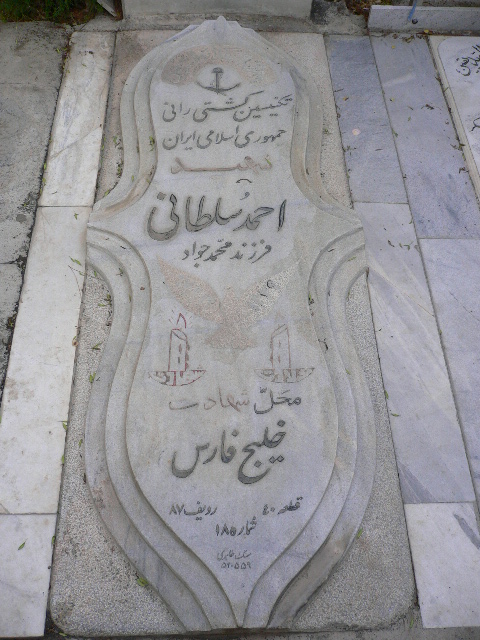 تکنیسین کشتی رانی
جمهوری اسلامی ایران
شهید
احمد سلطانی
فرزند محمد جواد
محلّ شهادت
خلیج فارس
قطعه ٤٠ ردیف ۸۷
شماره ۱۸۵
۵۲۰۵۵۹